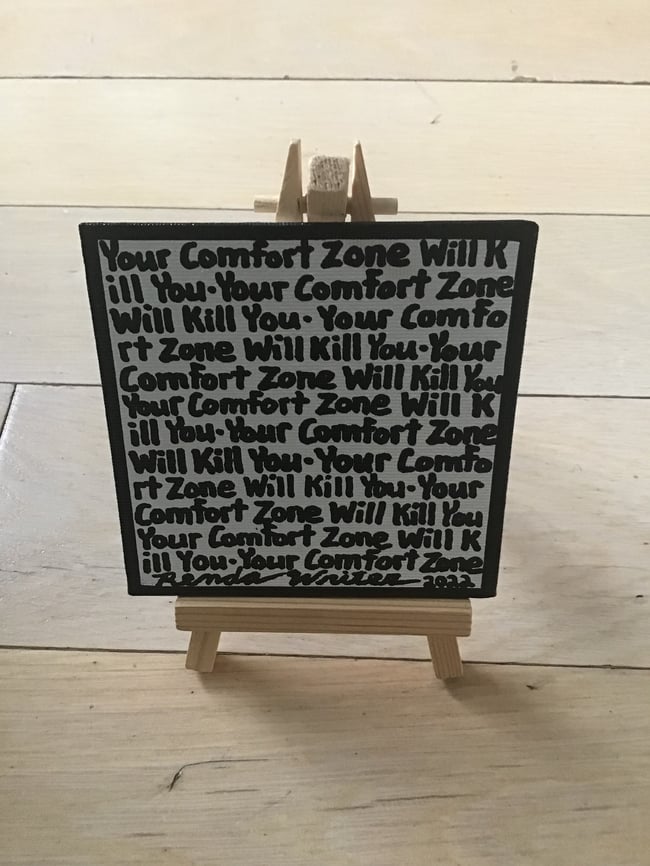 Your Comfort Zone Will K
ill You·Your Comfort Zone
Will Kill You· Your Comfo
rt Zone Will Kill You·Your
Comfort Zone Will Kill You
Your Comfort Zone Will K
ill You·Your Comfort Zone
Will Kill You·Your Comfo
rt Zone Will Kill You·Your
Comfort Zone Will Kill You
Your Comfort Zone Will K
ill You·Your Comfort Zone
Renda Writer 2022